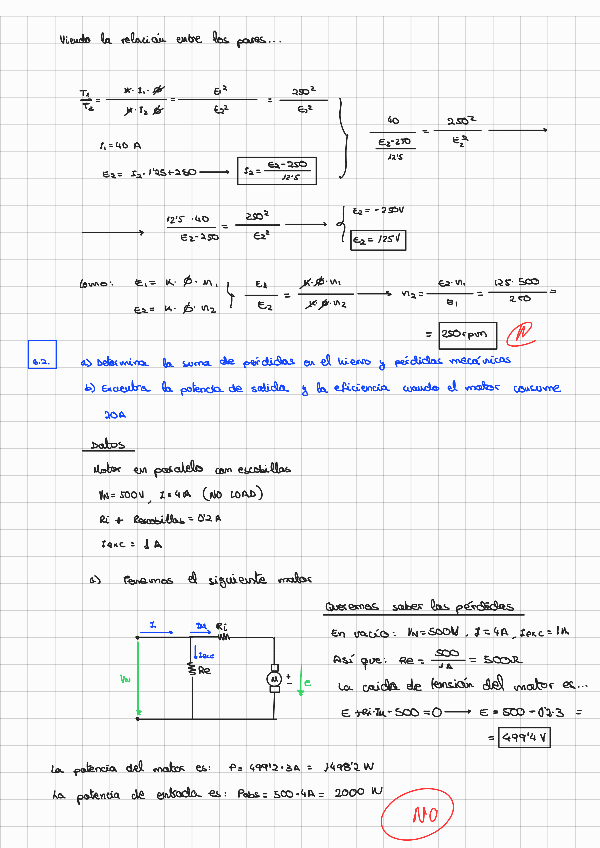 Viendo la relación entre los pares...
T1/T2 = K·I1·Ø / K·I2·Ø = E² / E2² = 250² / E2²
I1 = 40 A
E2 = I2·1'25+250 → I2 = E2-250 / 12'5
40 / (E2-250 / 12'5) = 250² / E2² →
→ 12'5·40 / E2-250 = 250² / E2² → E2 = -250V
E2 = 125V
Como: E1 = K·Ø·n1
E2 = K·Ø·n2
E1/E2 = K·Ø·n1 / K·Ø·n2 → n2 = E2·n1 / E1 = 125·500 / 250 =
= 250rpm
6.2. a) Determina la suma de pérdidas en el hierro y pérdidas mecánicas
b) Encuentra la potencia de salida y la eficiencia cuando el motor consume
20A
Datos
Motor en paralelo con escobillas
VN = 500V, I = 4A (NO LOAD)
Ri + Rescobillas = 0'2 A
Iexc = 1A
a) Tenemos el siguiente motor
Queremos saber las pérdidas
I IM Ri
Iexc
Re
VN
M
+
-
e
En vacío: VN = 500V, I = 4A, Iexc = 1A
Así que: Re = 500 / 1A = 500Ω
La caída de tensión del motor es...
E + Ri·IM - 500 = 0 → E = 500 - 0'2·3 =
= 499'4 V
La potencia del motor es: P = 499'2·3A = 1498'2 W
La potencia de entrada es: Pabs = 500·4A = 2000 W
NO